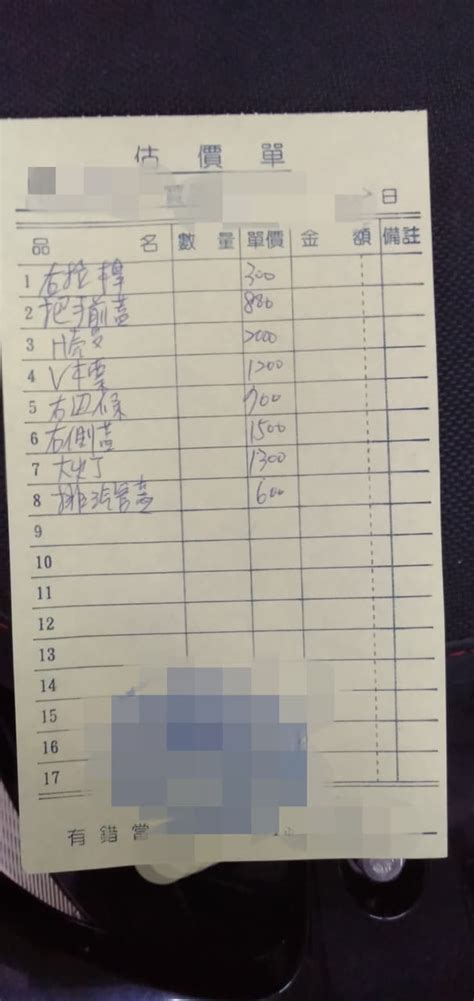 估價單
日
品名 數量 單價 金額 備註
1 右拉桿 300
2 把手前蓋 880
3 H殼 2000
4 V 1200
5 右邊條 700
6 右側蓋 1500
7 大燈 1300
8 排汽管蓋 600
9
10
11
12
13
14
15
16
17
有錯當